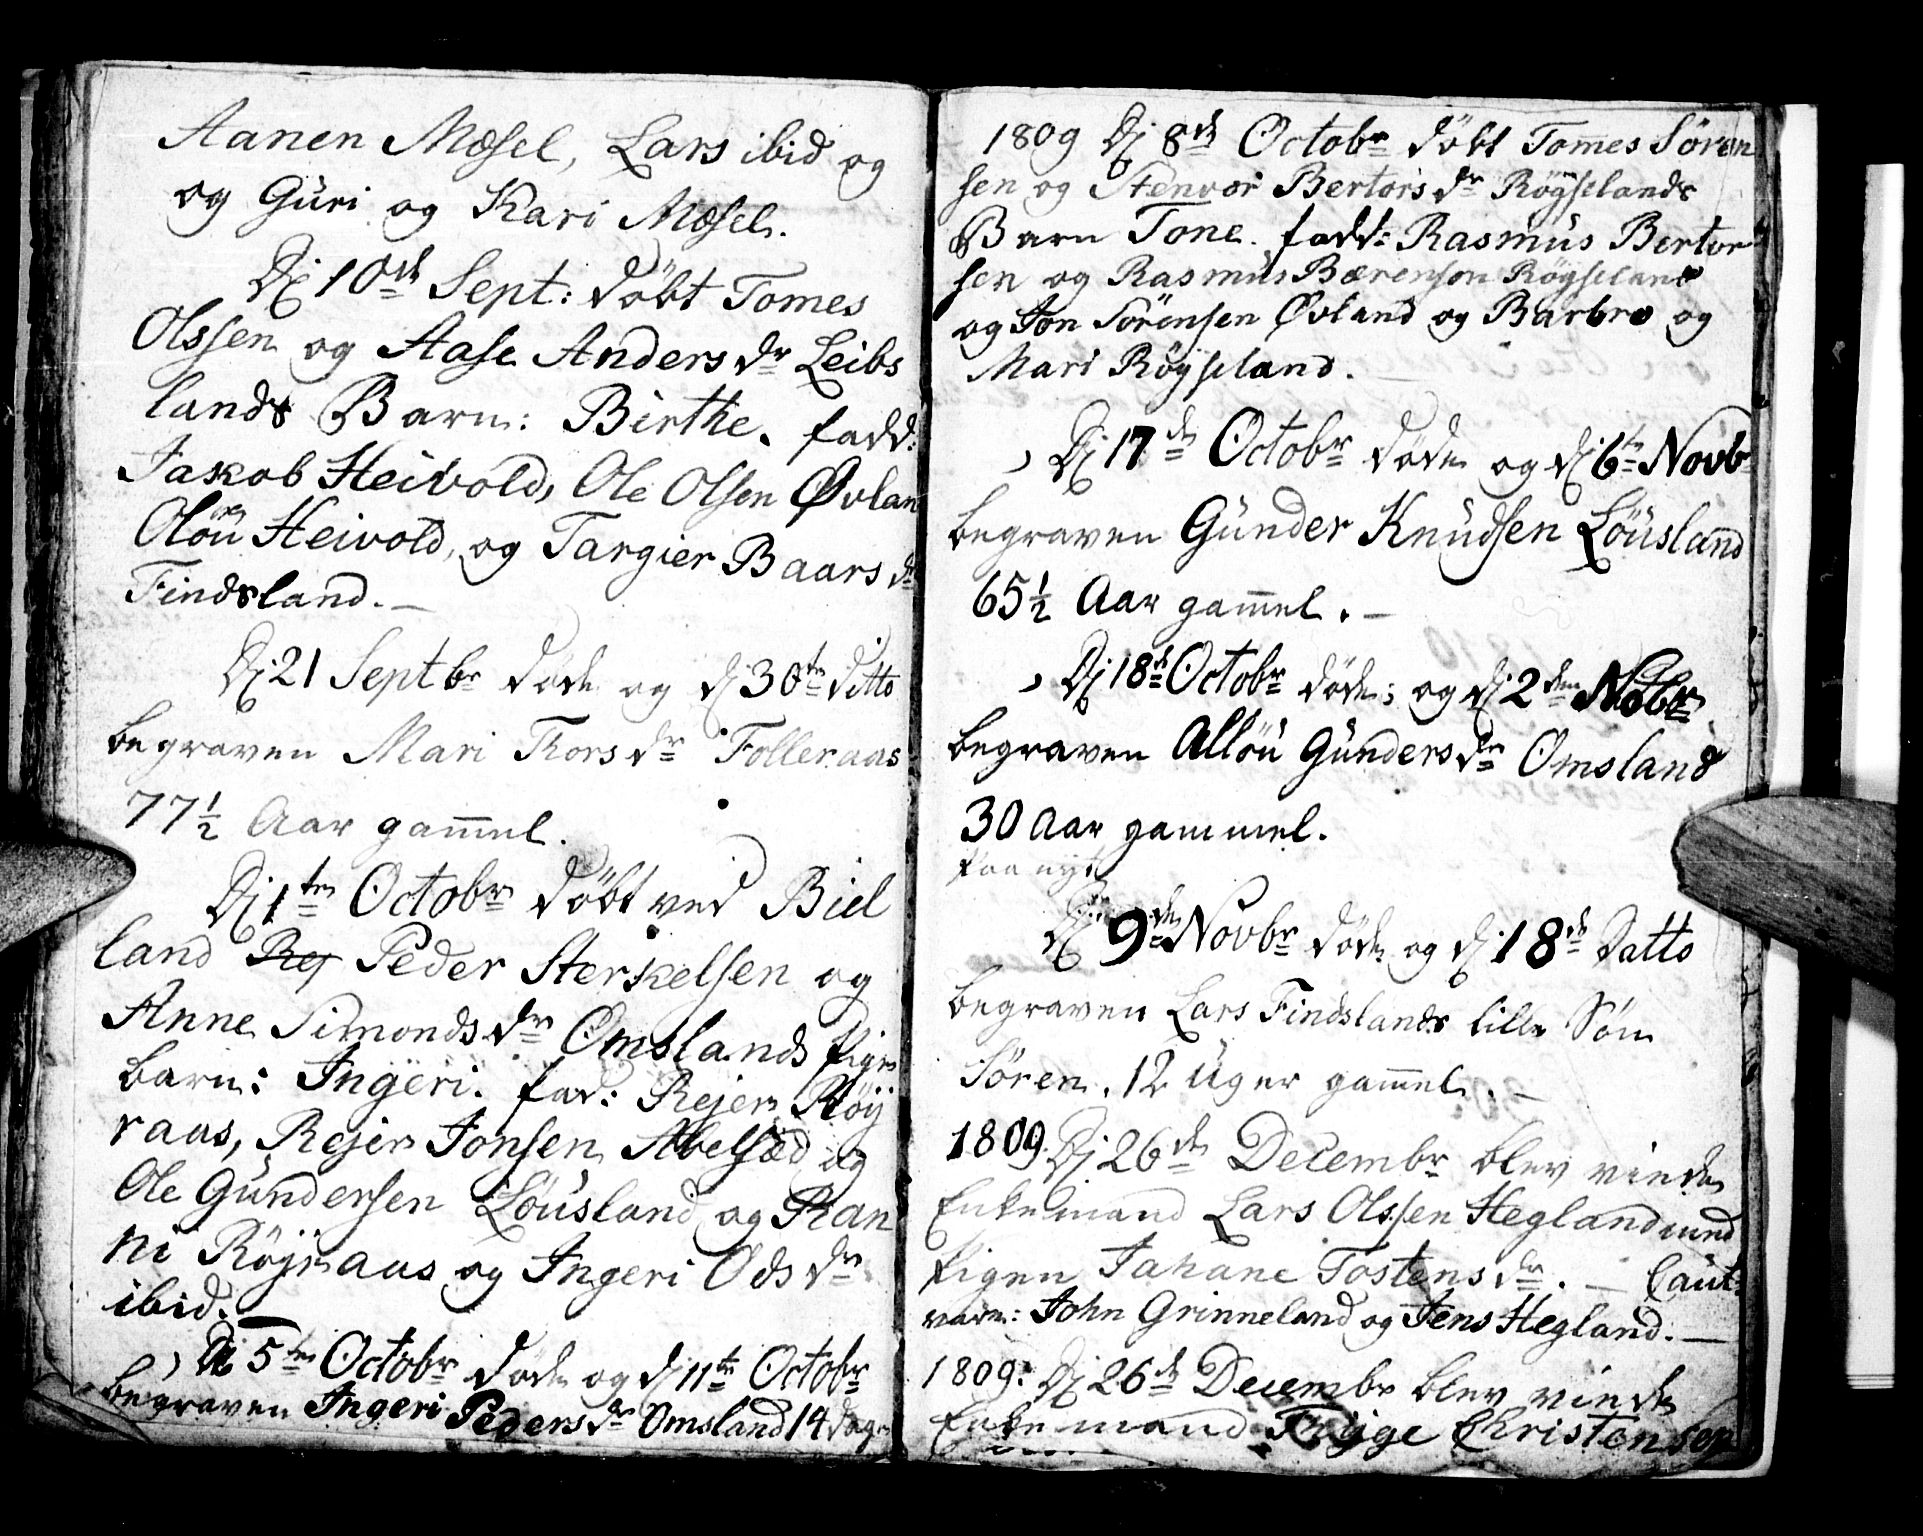 Aanen Mæsel, Lars ibid og
og Guri og Kari Mæsel.
Dj 10de Sept: døbt Tomes
Olssen og Aase Anders dr Leibs
lands Barn: Birthe. fadd:
Jakob Heivold, Ole Olsen Øvlan
Olöu Heivold, og Targier Baars dr
Findsland.—
Dj 21 Septbr døde og dj 30te ditto
begraven Mari Thors dr Folleraas
77½ Aar gam̅el.
Dj 1te Octobr døbt ved Biel
land Rej Peder Sterkelsen og
Anne Simonds dr Omslands Pige
barn: Ingeri. fad: Rejer Röij
raas, Rejer Jonsen Abelsæd og
Ole Gundersen Löusland og Ran
ni Röjraas og Ingeri Ods dr
ibid.—
Dj 5te Octobr døde og dj 11te Octobr
begraven Ingeri Peders dr Omsland 14 dage
1809 Dj 8de Octobr døbt Tom̅es Sören
sen og Stenvor Bertors dr Röyselands
Barn Tone. fadd: Rasmus Bertor
sen og Rasmus Bærensen Röyseland
og Jon Sörensen Øvland og Barbro og
Mari Röyseland.
Dj 17de Octobr døde og dj 6te Novbr
begraven Gunder Knudsen Löuslan̅d
65½ Aar gam̅el.—
Dj 18de Octobr døde; og dj 2den Novbr
begraven Allöu Gunders dr Omsland
30 Aar gammel.
paa nyt
Dj 9de Novbr døde og dj 18de Datto
begraven Lars Findslands lille Søn
Sören. 12 Uger gam̅el.—
1809. Dj 26de Decembr blev viede
Enkemand Lars Olssen Hegland med
Pigen Jahane Tostens dr.— Caut:
vare: John Grinneland og Jens Hegland.—
1809: Dj 26de Decembr blev viede
Enkemand Tryge Christensen